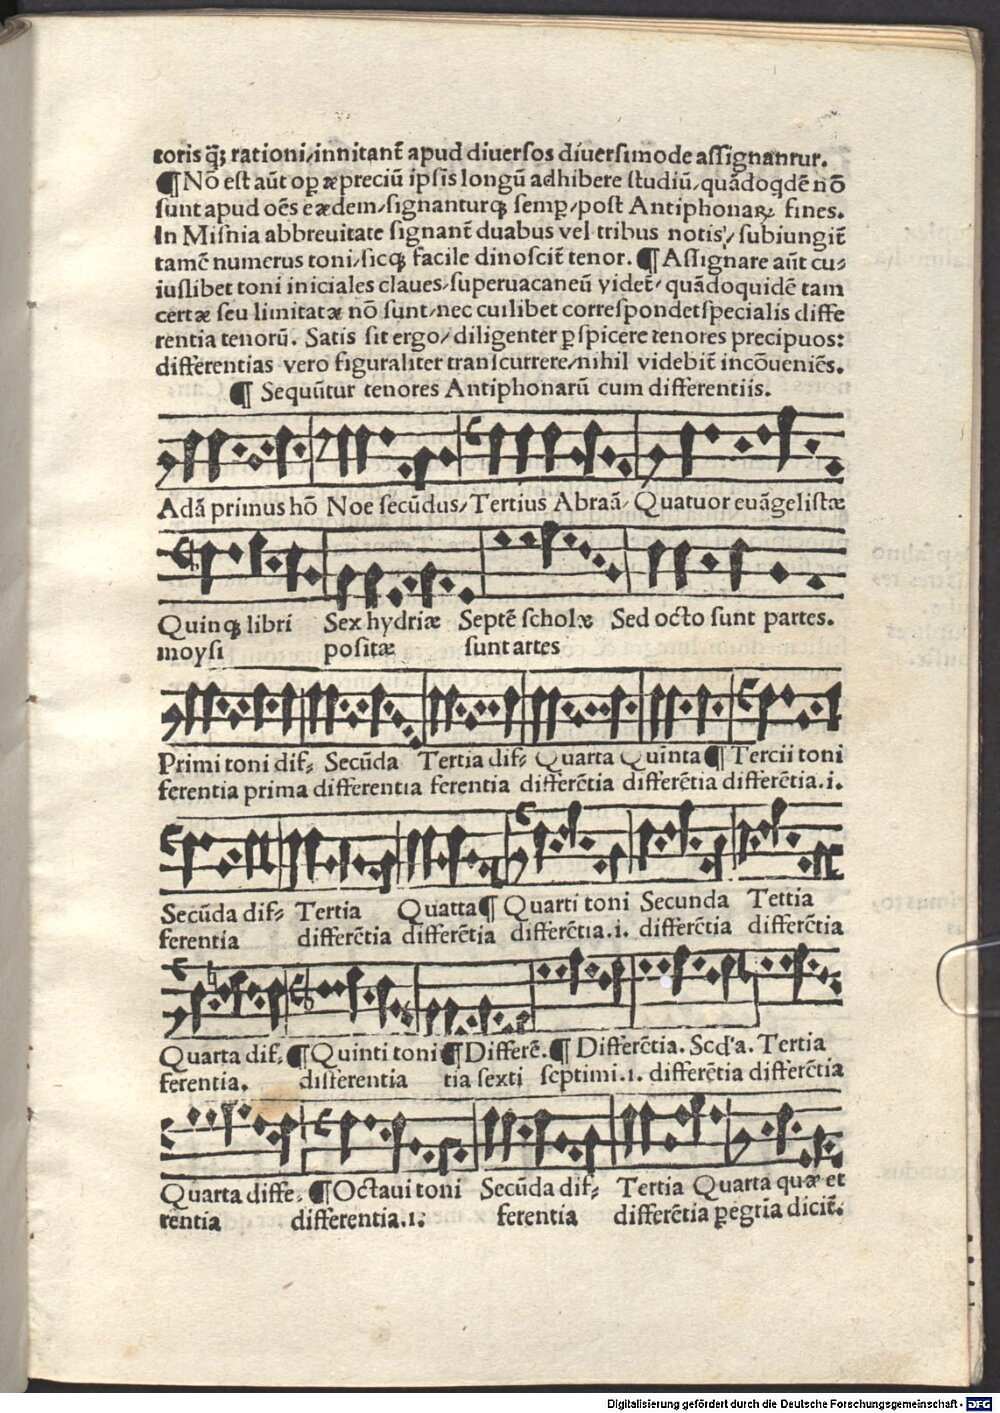 toris q̄; rationi/innitant̄ apud diuersos diuersimode assignantur.
¶ Nō est aūt op̱ æpreciū ipsis longū adhibere studiū/quādoqdē nō
sunt apud oēs eædem/signanturqꝫ semp̱/post Antiphonaꝝ fines.
In Misnia abbreuitate signant̄ duabus vel tribus notis/subiungit̄
tamē numerus toni/sicqꝫ facile dinoscit̄ tenor. ¶ Assignare aūt cu⸗
iuslibet toni iniciales claues/superuacaneū videt̄/quādoquidē tam
certæ seu limitatæ nō sunt/nec cuilibet correspondetspecialis diffe
rentia tenorū. Satis sit ergo/diligenter ꝑspicere tenores precipuos:
differentias vero figuraliter transcurrere/nihil videbit̄ incōueniēs.
¶ Sequūtur tenores Antiphonarū cum differentiis.
Adā primus hō Noe secūdus/Tertius Abraā/Quatuor euāgelistæ
Quinqꝫ libri Sex hydriæ Septē scholæ Sed octo sunt partes.
moysi positæ sunt artes
Primi toni dif⸗ Secūda Tertia dif⸗ Quarta Quinta ¶ Tercii toni
ferentia prima differentia ferentia differētia differētia differētia.i.
Secūda dif⸗ Tertia Quatta ¶ Quarti toni Secunda Tettia
ferentia differētia differētia differētia.i. differētia differētia
Quarta dif. ¶ Quinti toni ¶ Differē. ¶ Differētia. Scd'a. Tertia
ferentia. differentia tia sexti septimi.1. differētia differētia
Quarta diffe. ¶ Octaui toni Secūda dif⸗ Tertia Quarta quæ et
rentia differentia.1. ferentia differētia ꝑegtia dicit̄.
Digitalisierung gefördert durch die Deutsche Forschungsgemeinschaft - DFG